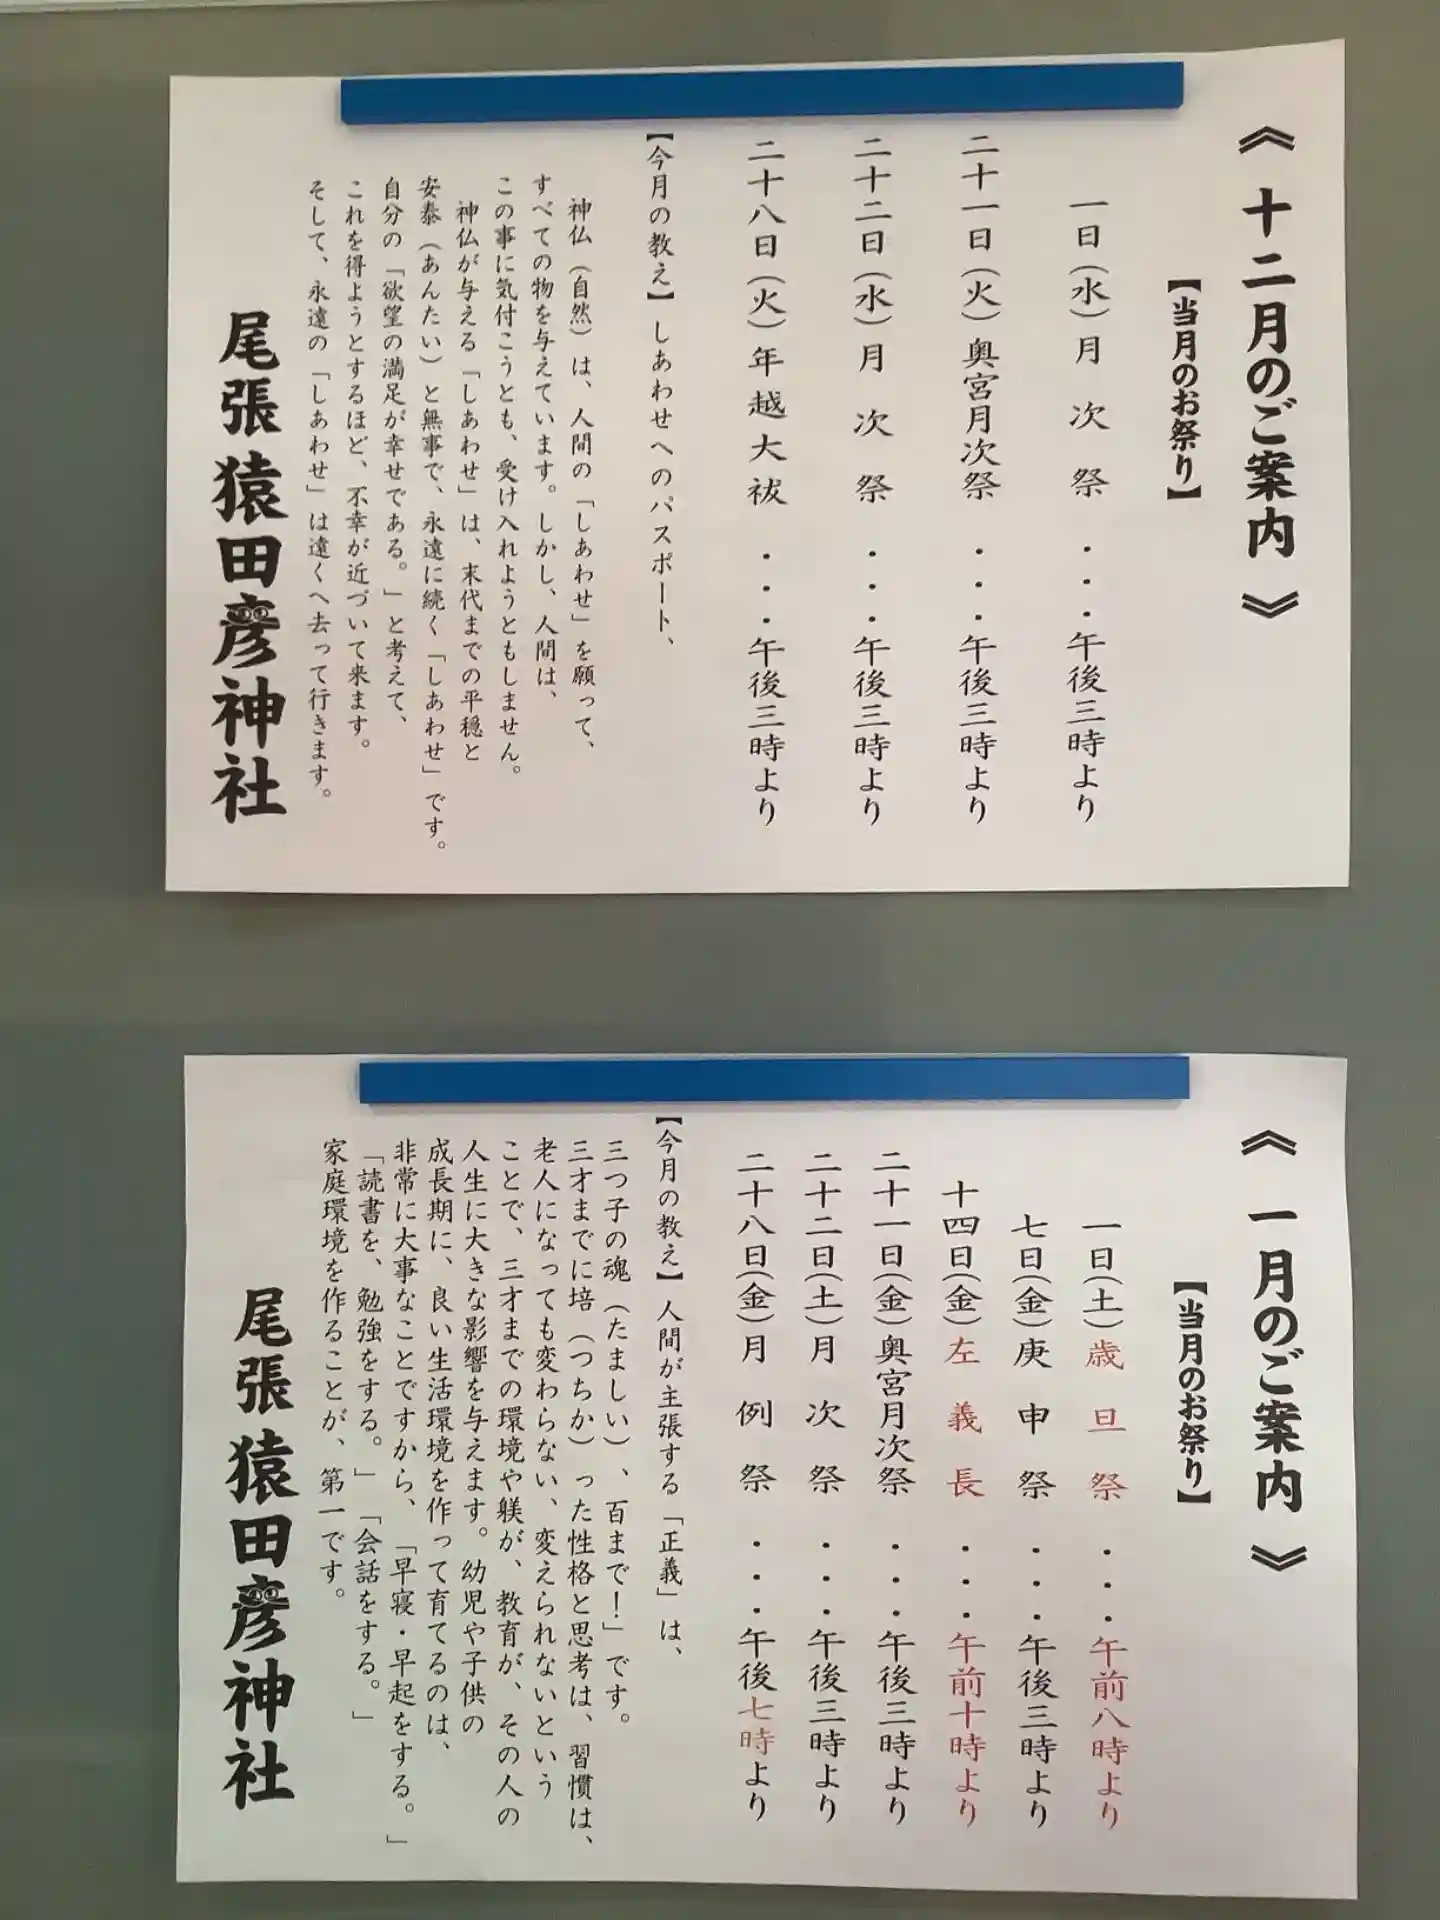 《 十二月のご案内 》
【当月のお祭り】
一日(水)月次祭・・・午後三時より
二十一日(火)奥宮月次祭・・・午後三時より
二十二日(水)月次祭・・・午後三時より
二十八日(火)年越大祓・・・午後三時より
【今月の教え】しあわせへのパスポート、
神仏(自然)は、人間の「しあわせ」を願って、
すべての物を与えています。しかし、人間は、
この事に気付こうとも、受け入れようともしません。
神仏が与える「しあわせ」は、末代までの平穏と
安泰(あんたい)と無事で、永遠に続く「しあわせ」です。
自分の「欲望の満足が幸せである。」と考えて、
これを得ようとするほど、不幸が近づいて来ます。
そして、永遠の「しあわせ」は遠くへ去って行きます。
尾張猿田彦神社
《 一月のご案内 》
【当月のお祭り】
一日(土)歳旦祭・・・午前八時より
七日(金)庚申祭・・・午後三時より
十四日(金)左義長・・・午前十時より
二十一日(金)奥宮月次祭・・・午後三時より
二十二日(土)月次祭・・・午後三時より
二十八日(金)月例祭・・・午後七時より
【今月の教え】人間が主張する「正義」は、
三つ子の魂(たましい)、百まで！」です。
三才までに培(つちか)った性格と思考は、習慣は、
老人になっても変わらない、変えられないという
ことで、三才までの環境や躾が、教育が、その人の
人生に大きな影響を与えます。幼児や子供の
成長期に、良い生活環境を作って育てるのは、
非常に大事なことですから、「早寝・早起をする。」
「読書を、勉強をする。」「会話をする。」
家庭環境を作ることが、第一です。
尾張猿田彦神社